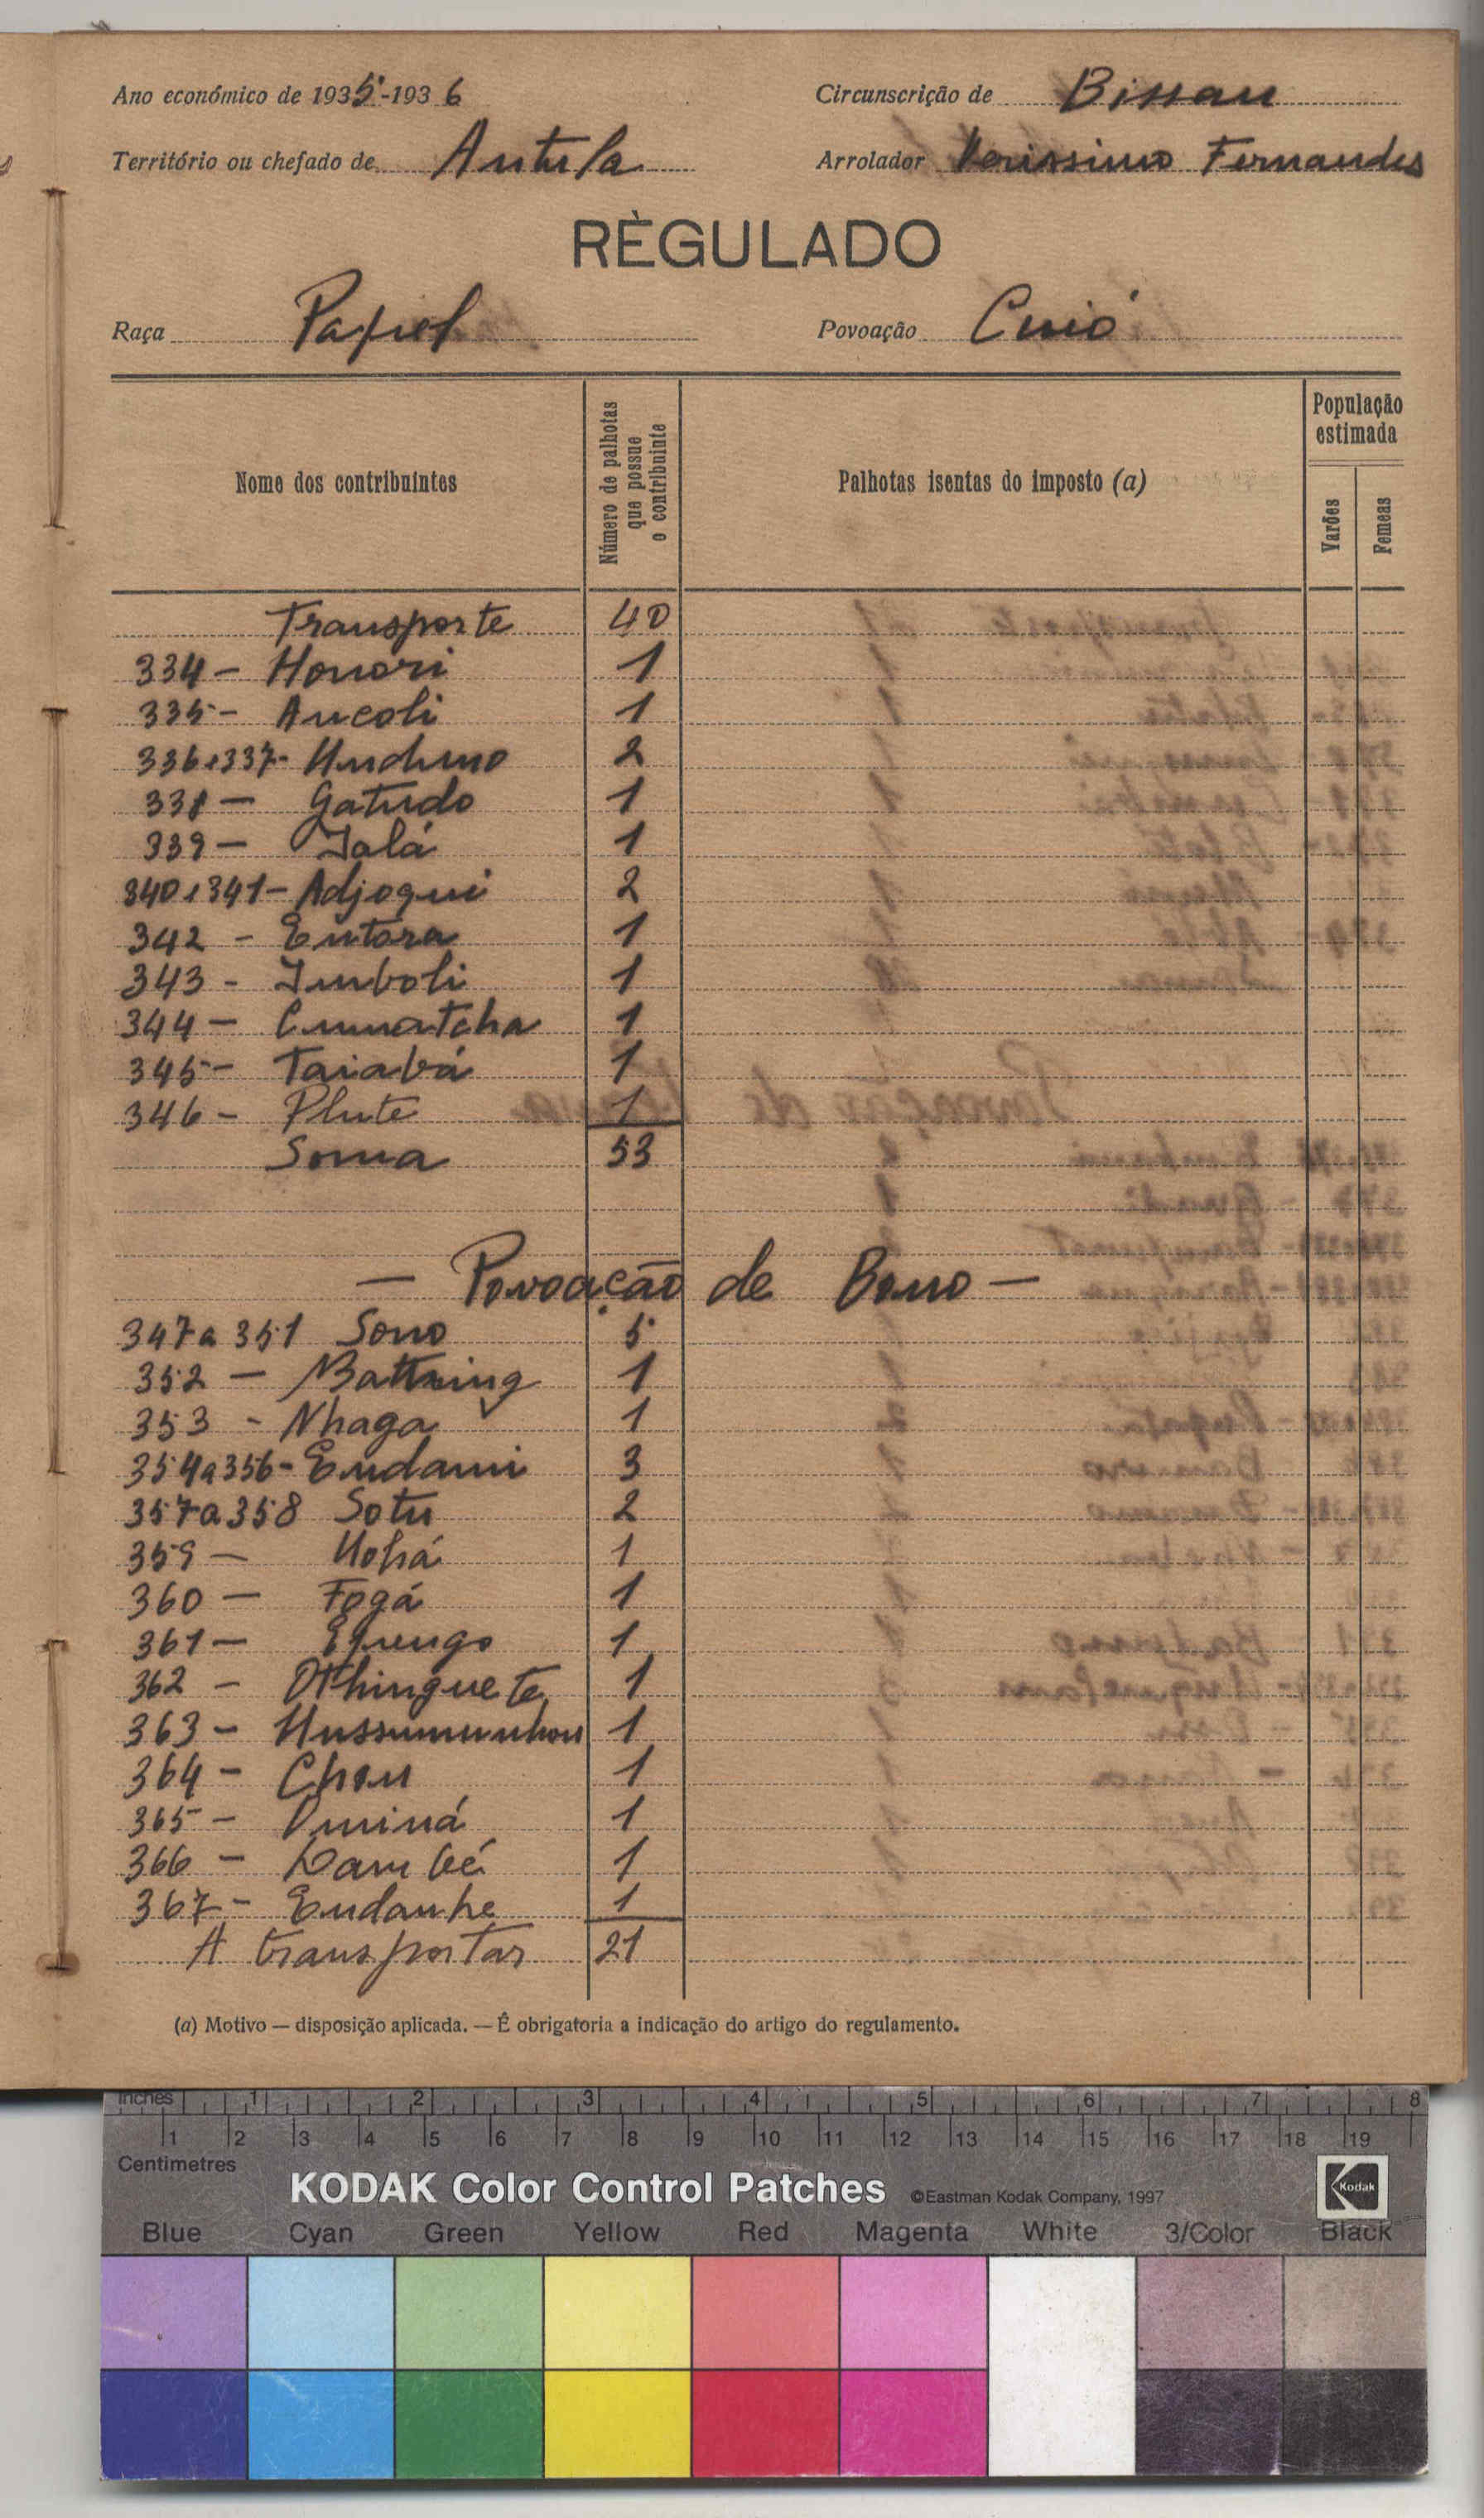 Ano económico de 1935-1936
Circunscrição de Bissau
Território ou chefado de Antula
Arrolador Verissimo Fernandes
RÈGULADO
Raça Papel
Povoação Cuió
Nome dos contribuintes
Número de palhotas que possue o contribuinte
Palhotas isentas do imposto (a)
População estimada
Varões
Femeas
Transporte 40
334 - Honori 1
335 - Ancoli 1
336 e 337 - Undumo 2
338 - Gatudo 1
339 - Jalá 1
340 e 341 - Adjoqui 2
342 - Entora 1
343 - Imboli 1
344 - Cumatcha 1
345 - Taiabá 1
346 - Plute 1
Soma 53
— Povoação de Bono —
347 a 351 Sono 5
352 - 1
353 - Nhaga 1
354 a 356 - Endami 3
357 a 358 Sotu 2
359 - Uohá 1
360 - Fogá 1
361 - 1
362 - Othinguete 1
363 - 1
364 - Chou 1
365 - Ominá 1
366 - Lambé 1
367 - Endanhe 1
A transportar 21
(a) Motivo — disposição aplicada. — É obrigatoria a indicação do artigo do regulamento.
Inches 1 2 3 4 5 6 7 8
1 2 3 4 5 6 7 8 9 10 11 12 13 14 15 16 17 18 19
Centimetres
KODAK Color Control Patches ©Eastman Kodak Company, 1997 Kodak
Blue Cyan Green Yellow Red Magenta White 3/Color Black